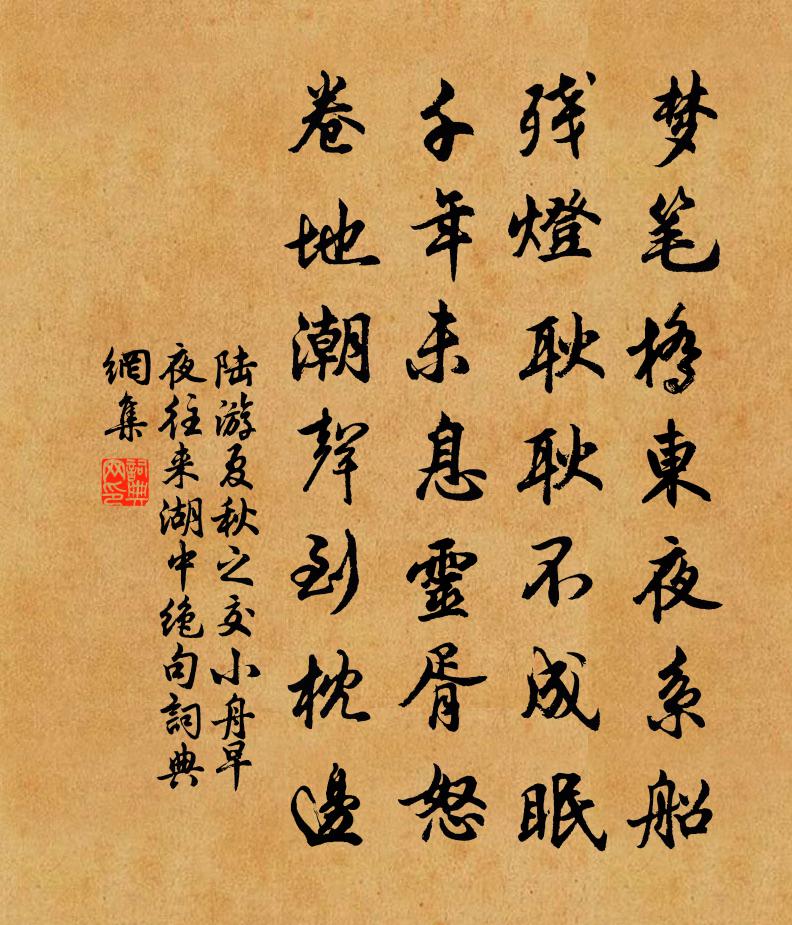 梦笔桥東夜系船
残燈耿耿不成眠
千年未息靈胥怒
卷地潮聲到枕邊
陆游夏秋之交小舟早
夜往来湖中绝句詞典
網集
詞典网印